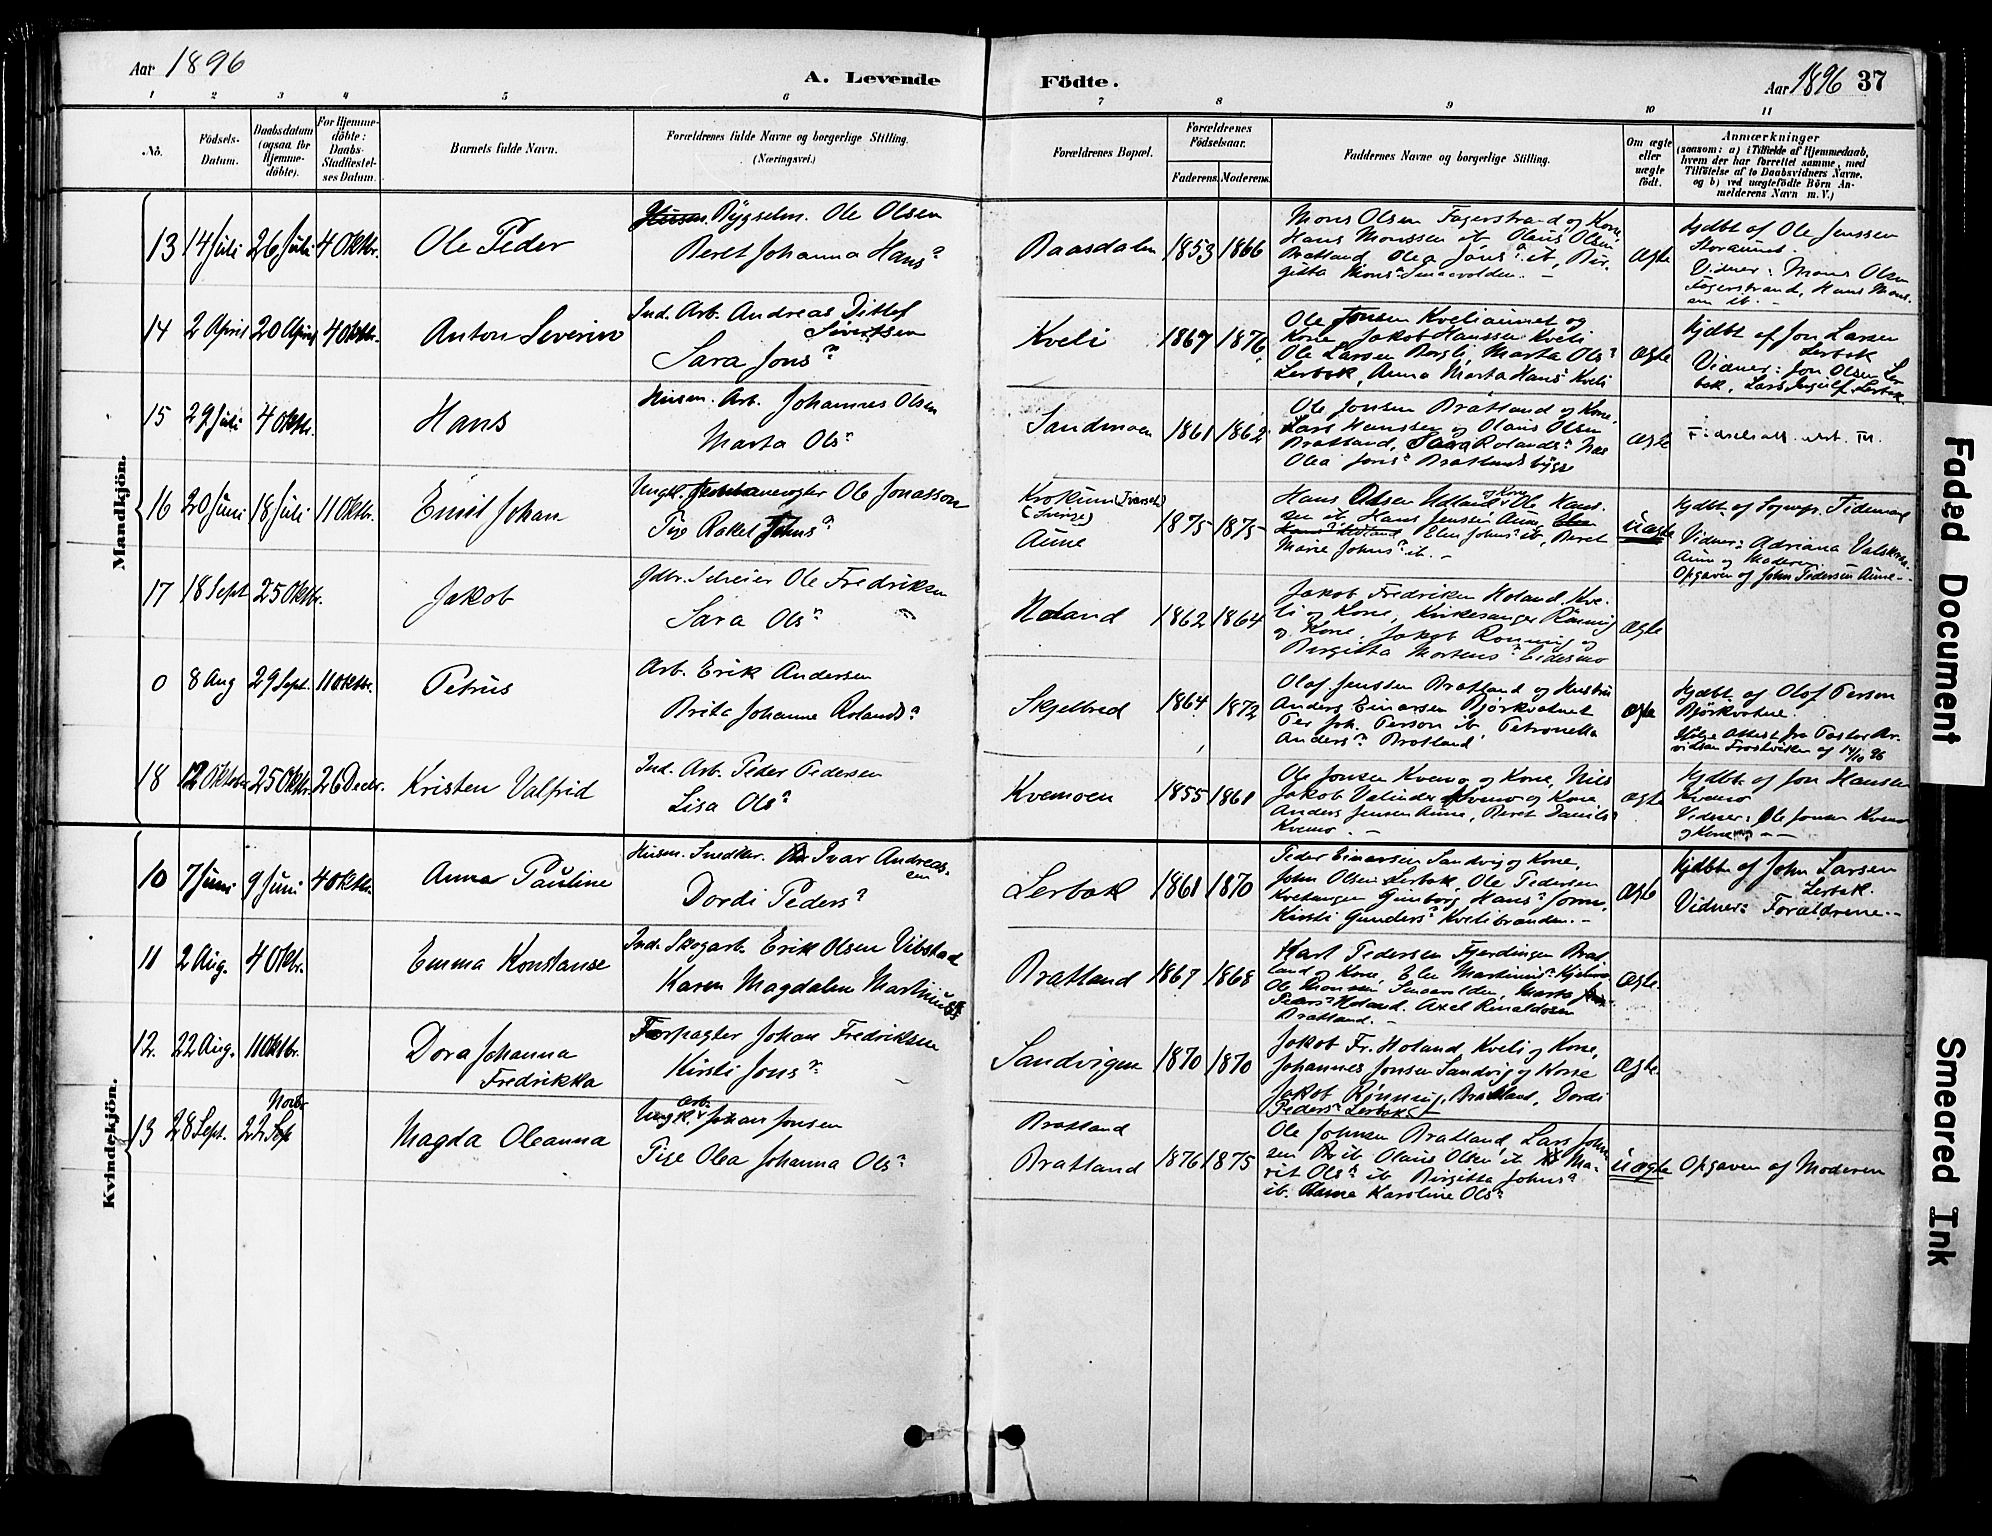 Aar 1896
A. Levende
Födte.
Aar 1896 37
1 2 3 4 5 6 7 8 9 10 11
No.
Födsels-
Datum.
Daabsdatum
(ogsaa for
Hjemme-
döbte).
For Hjemme-
döbte:
Daabs-
Stadfæstel-
ses Datum.
Barnets fulde Navn.
Forældrenes fulde Navne og borgerlige Stilling.
(Næringsvei.)
Forældrenes Bopæl.
Forældrenes
Födselsaar.
Faderens. Moderens.
Faddernes Navne og borgerlige Stilling.
Om ægte
eller
uægte
födt.
Anmærkninger
(saasom: a) i Tilfælde af Hjemmedaab,
hvem der har forrettet samme, med
Tilföielse af to Daabsvidners Navne,
og b) ved uægtefödte Börn An-
melderens Navn m. V.)
Mandkjön.
13 14 Juli 26 Juli 4 Oktbr.
Ole Peder
Husm. Bygselm. Ole Olsen
Beret Johanna Hans?
Raasdalen 1853 1866
Mons Olsen Fagerstrand og Kone,
Hans Monssen ib. Olaus Olsen
Bratland, Olea Jons? ib, Bir-
gitta Mons?
Ægte
Hjdbt af Ole Jenssen
Storaunet.
Vidner: Mons Olsen
Fagerstrand, Hans Mons-
sen ib. -
14 2 April 20 April 4 Oktbr.
Anton Severin
Ind. Arb. Andreas Ditlef
Sivertsen
Sara Jons?
Kveli 1867 1876
Ole Jonsen Kveliaunet og
Kone, Jakob Hanssen Kveli
Ole Larsen Bergli, Marta Ols?
Lerbak, Anna Marta Hans? Kveli
Ægte
Hjdbt af Jon Larsen
Lerbak
Vidner: Jon Olsen Ler-
bak, Lars Lerbak.
15 29 Juli 4 Oktbr.
Hans
Husm. Arb. Johannes Olsen
Marta Ols?
Sandmoen 1861 1862
Ole Jonsen Bratland og Kone,
Lars Hanssen og Olaus Olsen
Bratland, Sara Rolands?
Olea Jons? Bratlandsbygg
Ægte
16 20 Juni 18 Juli 11 Oktbr.
Emil Johan
Ungk. Ole Jonasson
Pige Rakel Johns?
Krokum
(Sverige)
Aune
1875 1875
Hans Olsen Utland og Kone, Ole Hans-
sen ib. Hans Jenssen Aune,
Elen Johns? ib, Beret
Marie Johns? ib. -
Uægte
Hjdbt. af Sognepr. Tidemand
Vidner: Adriana
Aune og Moderen.
Opgaven af John Pedersen Aune. -
17 18 Sept 25 Oktbr.
Jakob
Gdbr. Seleier Ole Fredriksen
Sara Ols?
Holand 1862 1864
Jakob Fredriksen Holand, Kve-
li og Kone, Kirkesanger Rönning
og Kone, Jakob Rönning og
Birgitta Mortens? Eidesmo
Ægte
0 8 Aug 29 Sept. 11 Oktbr.
Petrus
Arb. Erik Andersen
Brita Johanna Rolands?
Skjelbred 1864 1872
Olaf Jenssen Bratland og Hustru
Anders Einarsen Björkvatnet
Per Joh. Person ib, Petronella
Anders? Bratland
Ægte
Hjdbt af Olof Person
Björkvatne.
Ifölge Attest fra Pastor Ar-
vidson Frostviken af 14/10 96
18 12 Oktober 25 Oktbr. 26 Decbr.
Kristen Valfrid
Ind. Arb. Peder Pedersen
Lisa Ols?
Kvemoen 1855 1861
Ole Jonsen Kvemo og Kone, Nils
Jakob Valinder Kvemo og Kone
Anders Jensen Aune, Beret Daniels?
Kvemo. -
Ægte
Hjdbt. af Jon Hansen
Kvemo
Vidner: Ole Jonsen Kvemo
og Kone
Kvindekjön.
10 7 Juni 9 Juni 4 Oktbr.
Anna Pauline
Husm. Snedker. Ivar Andreas-
sen
Dordi Peders?
Lerbak 1861 1870
Peder Einarsen Sandvig og Kone,
John Olsen Lerbak, Ole Pedersen
Gunborg Hans?
Kirsti Gunders? Kvelibranden. -
Ægte
Hjdbt. af John Larsen
Lerbak.
Vidner: Forældrene. -
11 2 Aug. 4 Okbr.
Emma Konstanse
Ind. Skogarb. Erik Olsen Vibstad
Karen Magdalen Martinus?
Bratland 1867 1868
Karl Pedersen Fjerdingen Brat-
land og Kone, Elen Martinus?
Ole Monssen Marta
Peders? Holand. Axel Rinaldosen
Bratland. -
Ægte.
12. 22 Aug. 11 Oktbr.
Dora Johanna
Fredrikka
Forpagter Johan Fredriksen
Kirsti Jons?
Sandvigen 1870 1870
Jakob Fr. Holand, Kveli og Kone,
Johannes Jonsen Sandvig og Kone
Jakob Rönning, Bratland, Dordi
Peders? Lerbak
Ægte.
13 28 Sept. 22 Sep Novbr
Magda Oleanna
Ungk. Arb. Johan Jonsen
Pige Olea Johanna Ols?
Bratland
Bratland
1876 1875
Ole Johnsen Bratland, Lars John-
sen ib. Olaus Olsen ib, Ma-
rit Ols? ib, Birgitta Johns?
ib. Anna Karoline Ols?
Uægte
Opgaven af Moderen
Faded Document
Smeared Ink